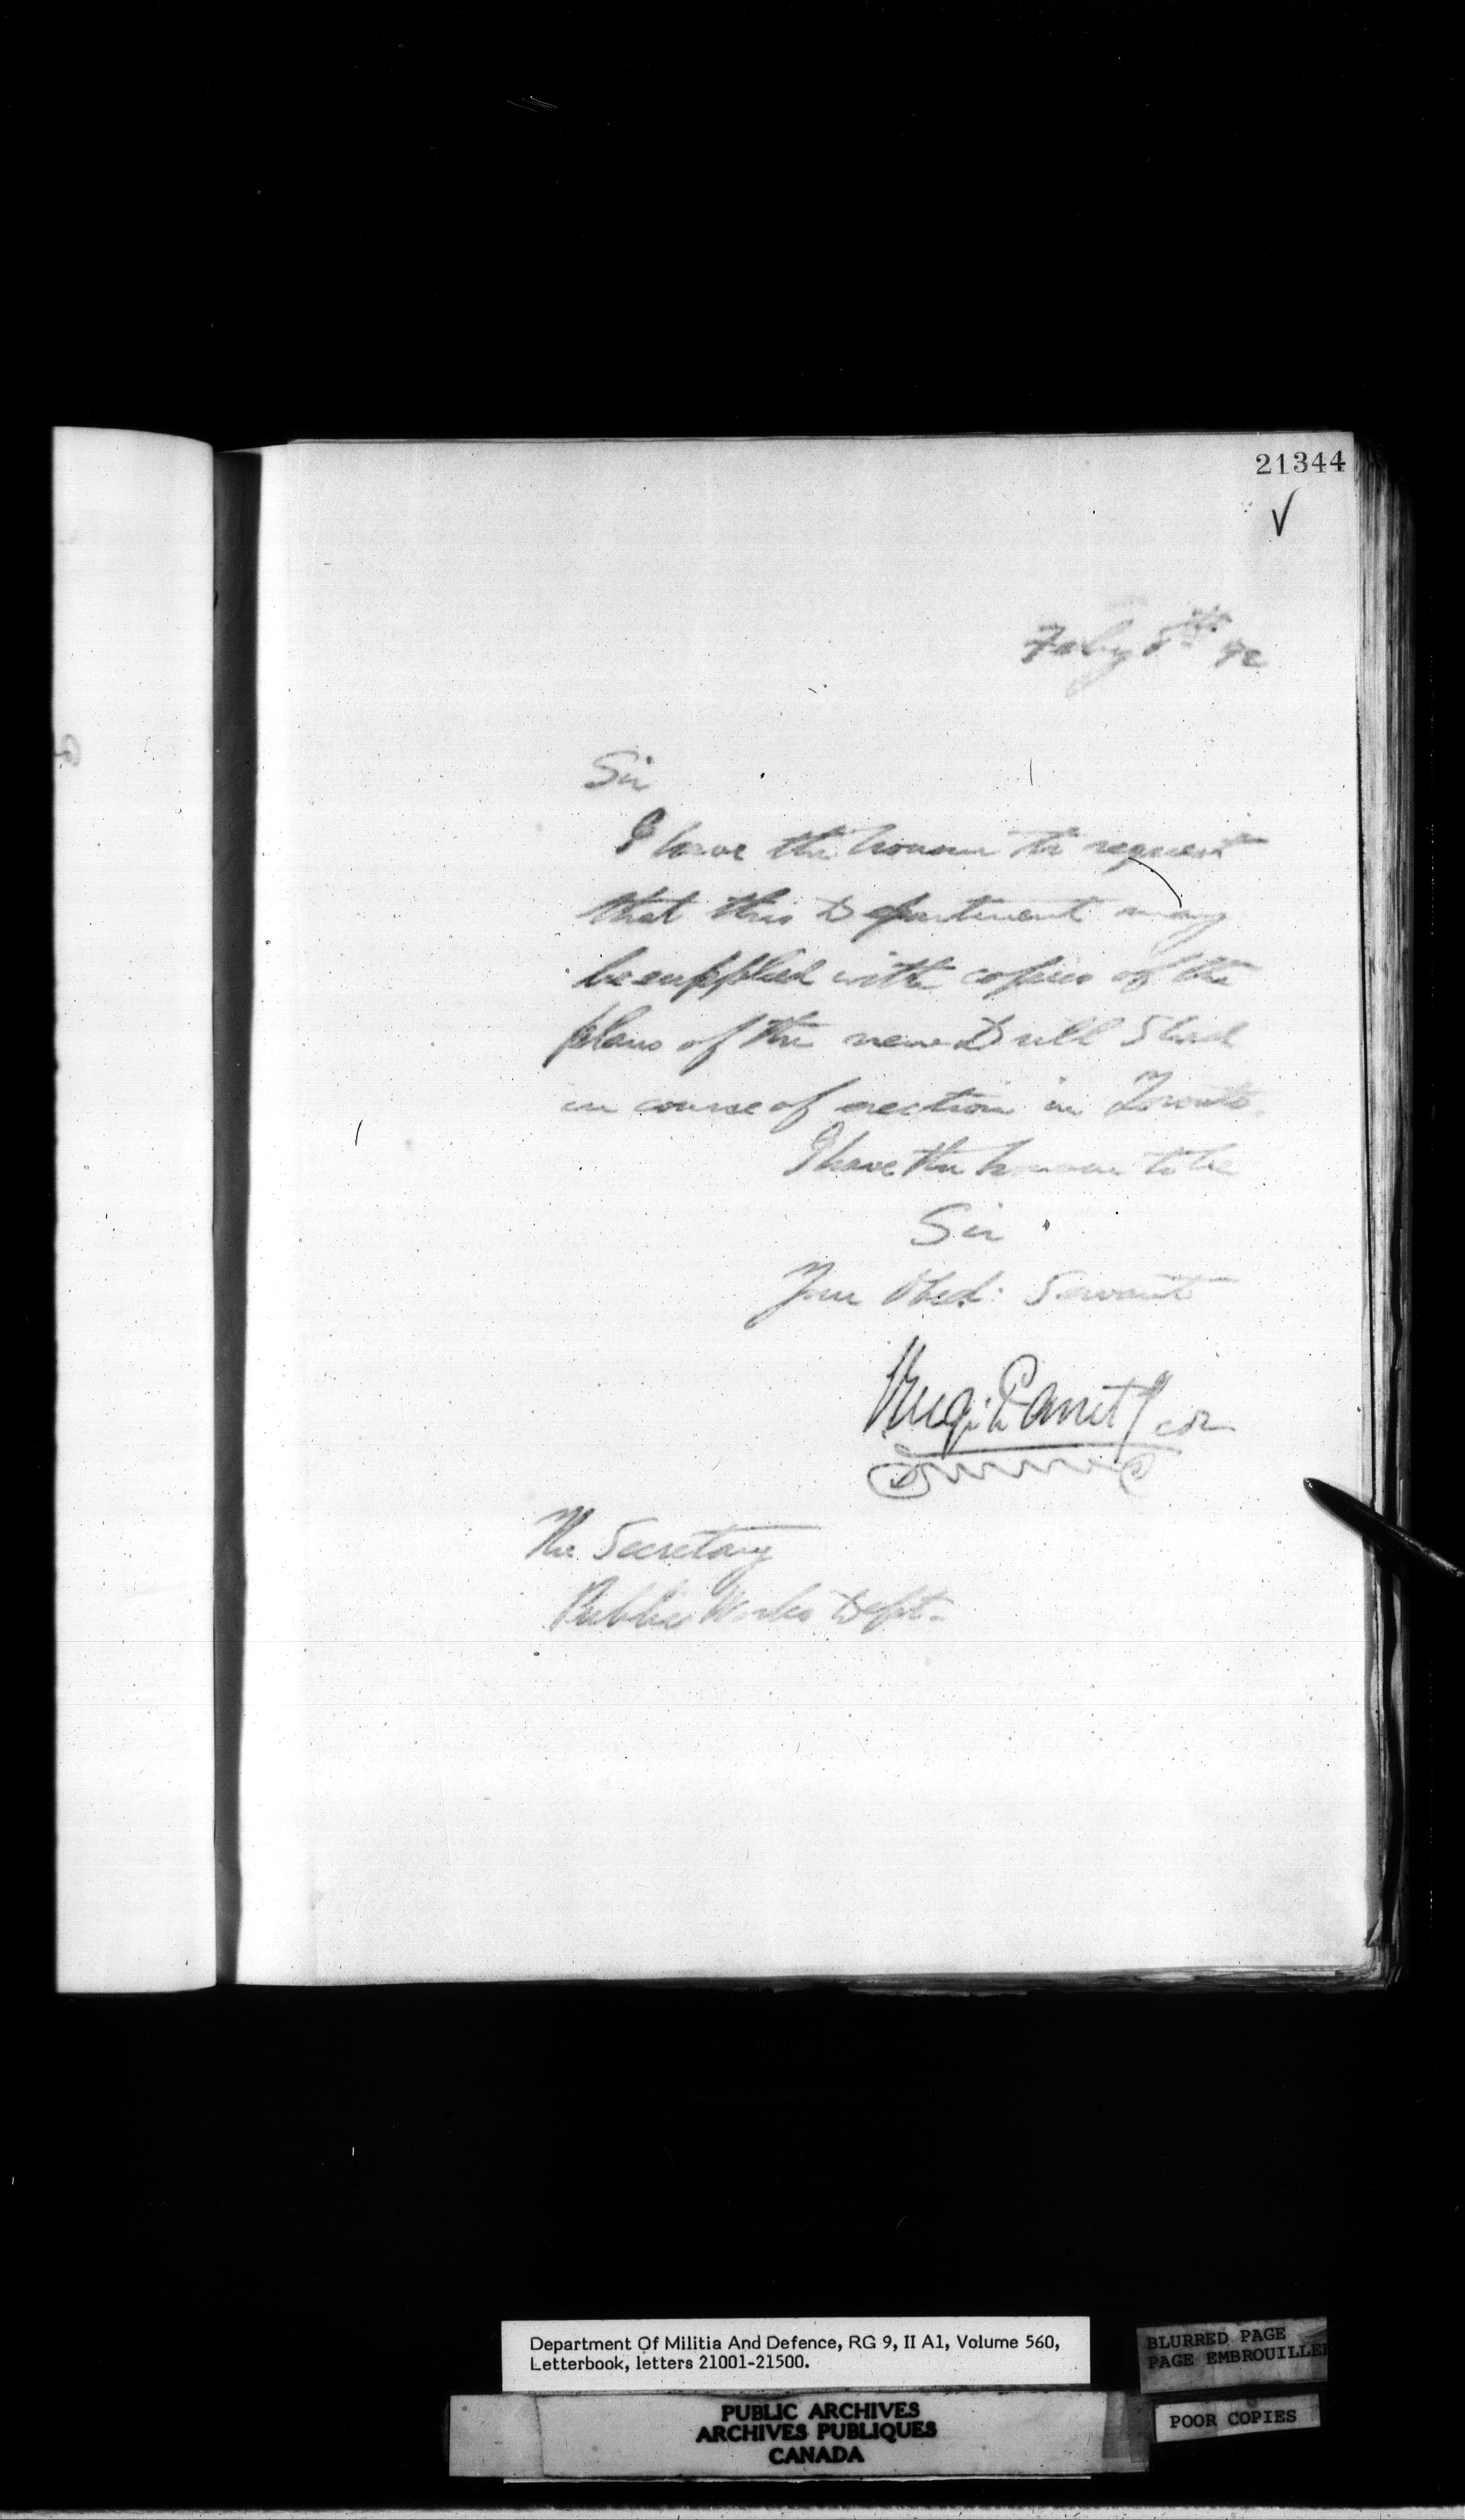 21344
Feby 8th 92
Sir
I have the honour to request
that this Department may
be supplied with copies of the
plans of the new Drill Shed
in course of erection in Toronto.
I have the honour to be
Sir
Your Obed: Servant
The Secretary
Public Works Dept.
Department Of Militia And Defence, RG 9, II A1, Volume 560,
Letterbook, letters 21001-21500.
BLURRED PAGE
PAGE EMBROUILLEE
POOR COPIES
PUBLIC ARCHIVES
ARCHIVES PUBLIQUES
CANADA